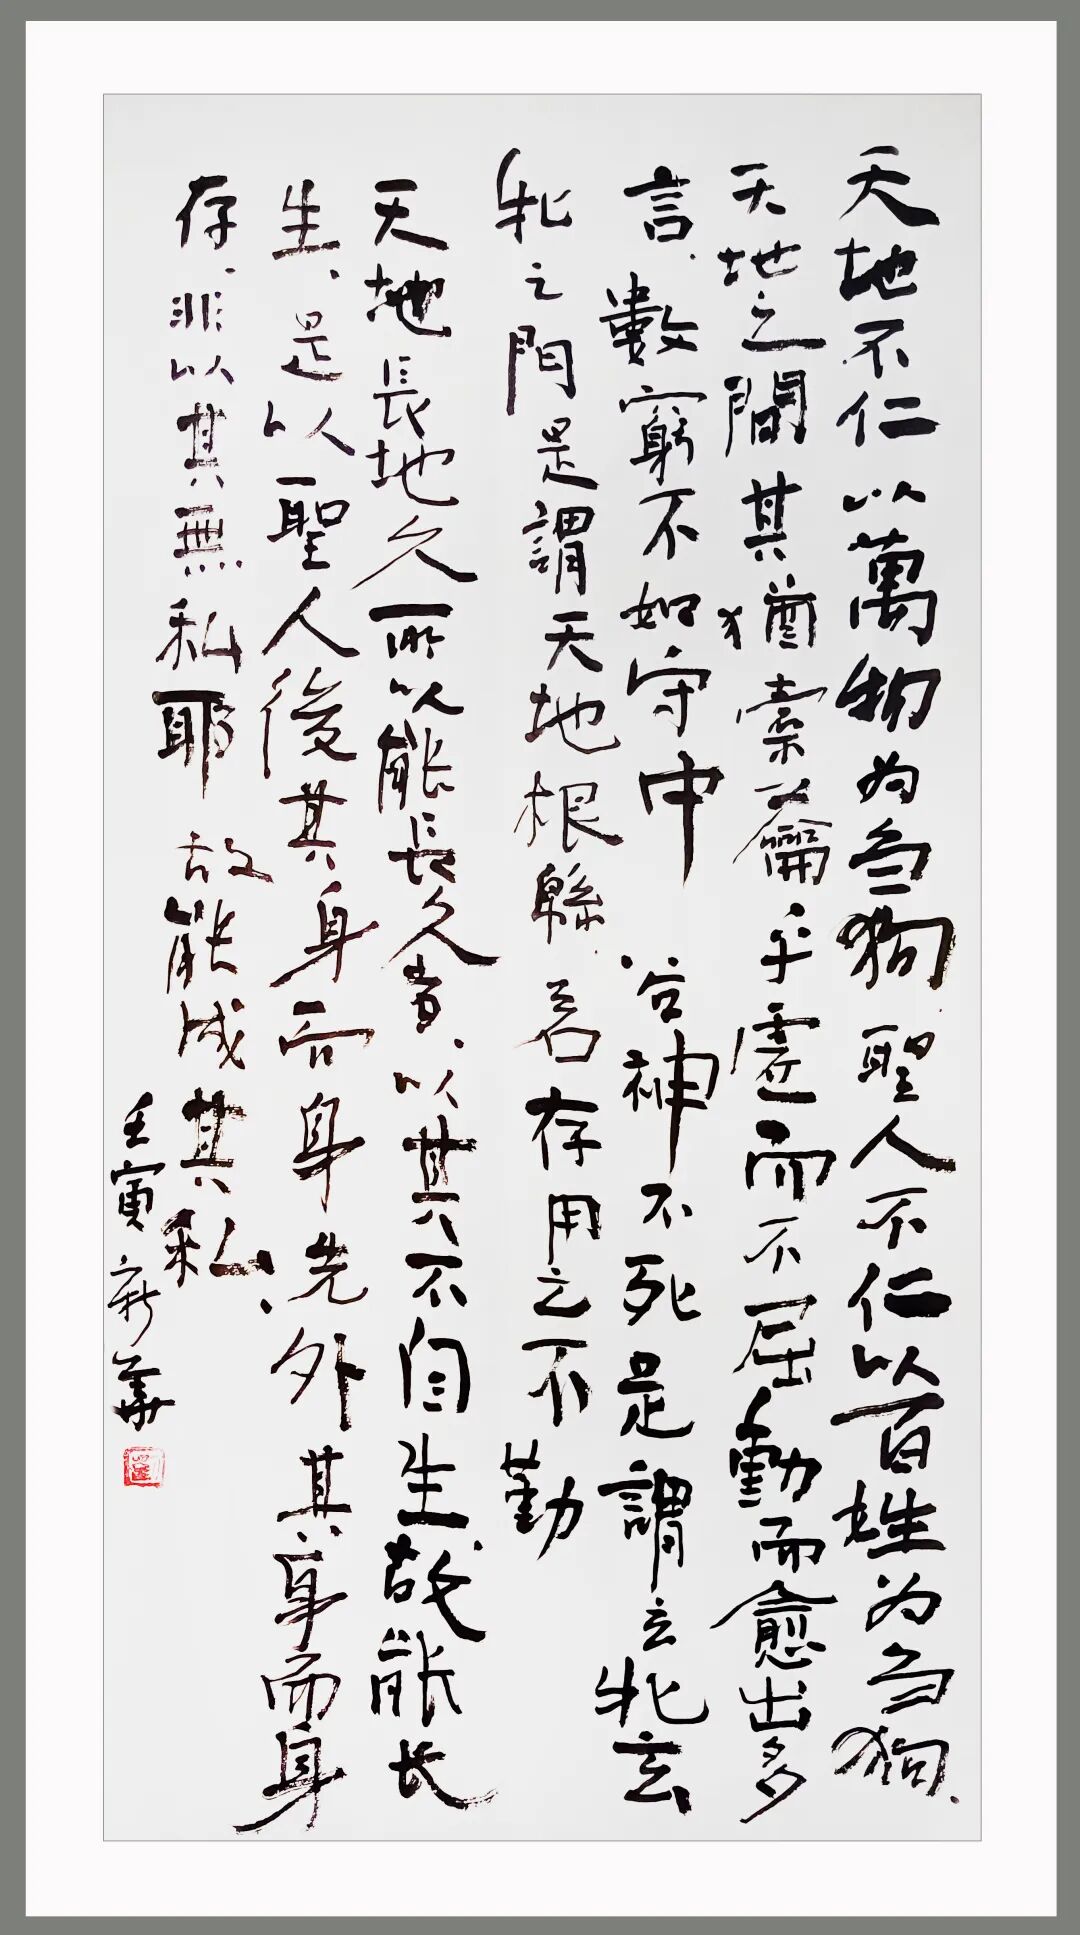 天地不仁以萬物为刍狗聖人不仁以百姓为刍狗
天地之間其猶橐籥乎虛而不屈動而愈出多
言數窮不如守中谷神不死是謂玄牝玄
牝之門是謂天地根緜若存用之不勤
天地長地久所以能長久者以其不自生故能长
生是以聖人後其身而身先外其身而身
存非以其無私耶故能成其私
壬寅新華